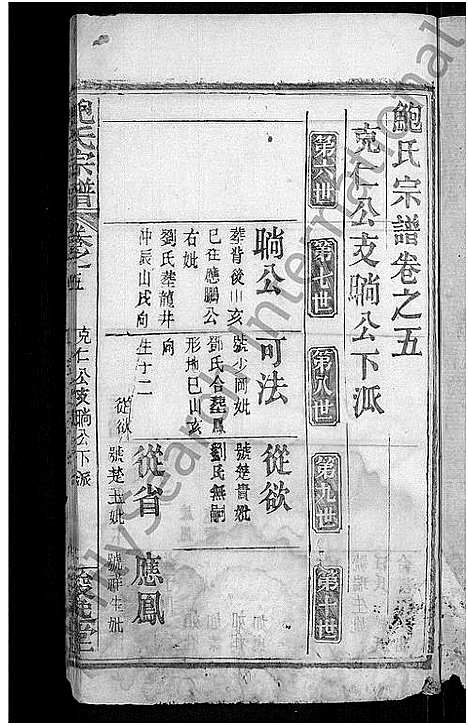 鮑氏宗譜卷之五
克仁公支瞷公下派
第六世
第七世
第八世
第九世
第十世
瞷公
葬背後山亥
巳往應鵬公
右妣
劉氏葬龍井
仲辰山戌向
可法
號少岡妣
鄧氏合葬鳳
形地巳山亥
向
生子二
從欲
從欲
號楚貴妣
劉氏無嗣
從省
號楚玉妣
應鳳
號祥生妣
鮑氏宗譜
卷之五
克仁公支瞷公下派
My Search International